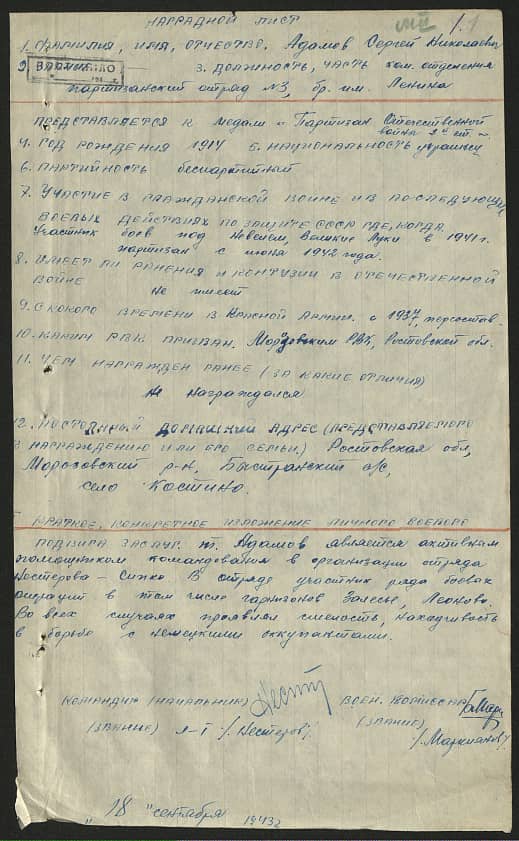 НАГРАДНОЙ ЛИСТ
1. ФАМИЛИЯ, ИМЯ, ОТЧЕСТВО. Адамов Сергей Николаевич
3. ДОЛЖНОСТЬ, ЧАСТЬ ком. отделения
партизанский отряд №3, бр. им. Ленина
ПРЕДСТАВЛЯЕТСЯ к медали "Партизан Отечественной
войны 2й ст."
4. ГОД РОЖДЕНИЯ 1917 5. НАЦИОНАЛЬНОСТЬ украинец
6. ПАРТИЙНОСТЬ беспартийный
7. УЧАСТИЕ В ГРАЖДАНСКОЙ ВОЙНЕ И В ПОСЛЕДУЮЩИХ
БОЕВЫХ ДЕЙСТВИЯХ ПО ЗАЩИТЕ СССР ГДЕ, КОГДА.
Участник боев под Невелем, Великие Луки в 1941 г.
партизан с июня 1942 года.
8. ИМЕЕТ ЛИ РАНЕНИЯ И КОНТУЗИИ В ОТЕЧЕСТВЕННОЙ
ВОЙНЕ
Не имеет
9. С КАКОГО ВРЕМЕНИ В КРАСНОЙ АРМИИ. с 1937
10. КАКИМ РВК ПРИЗВАН. Морозовским РВК, Ростовской обл.
11. ЧЕМ НАГРАЖДЕН РАНЕЕ (ЗА КАКИЕ ОТЛИЧИЯ)
Не награждался
12. ПОСТОЯННЫЙ ДОМАШНИЙ АДРЕС (ПРЕДСТАВЛЯЕМОГО
К НАГРАЖДЕНИЮ ИЛИ ЕГО СЕМЬИ.) Ростовская обл,
Морозовский р-н, с/с,
село Костино.
КРАТКОЕ, КОНКРЕТНОЕ ИЗЛОЖЕНИЕ ЛИЧНОГО БОЕВОГО
ПОДВИГА ЗАСЛУГ. т. Адамов является активным
помощником командования в организации отряда
Нестерова - Сипко. В отряде участник ряда боевых
операций в том числе гарнизонов Залесье, Леоново.
Во всех случаях проявлял смелость, находчивость
в борьбе с немецкими оккупантами.
КОМАНДИР (НАЧАЛЬНИК) ВОЕН. КОМИССАР
(ЗВАНИЕ) /Нестеров/ (ЗВАНИЕ)
/Маркианов/
"18" сентября 1943г